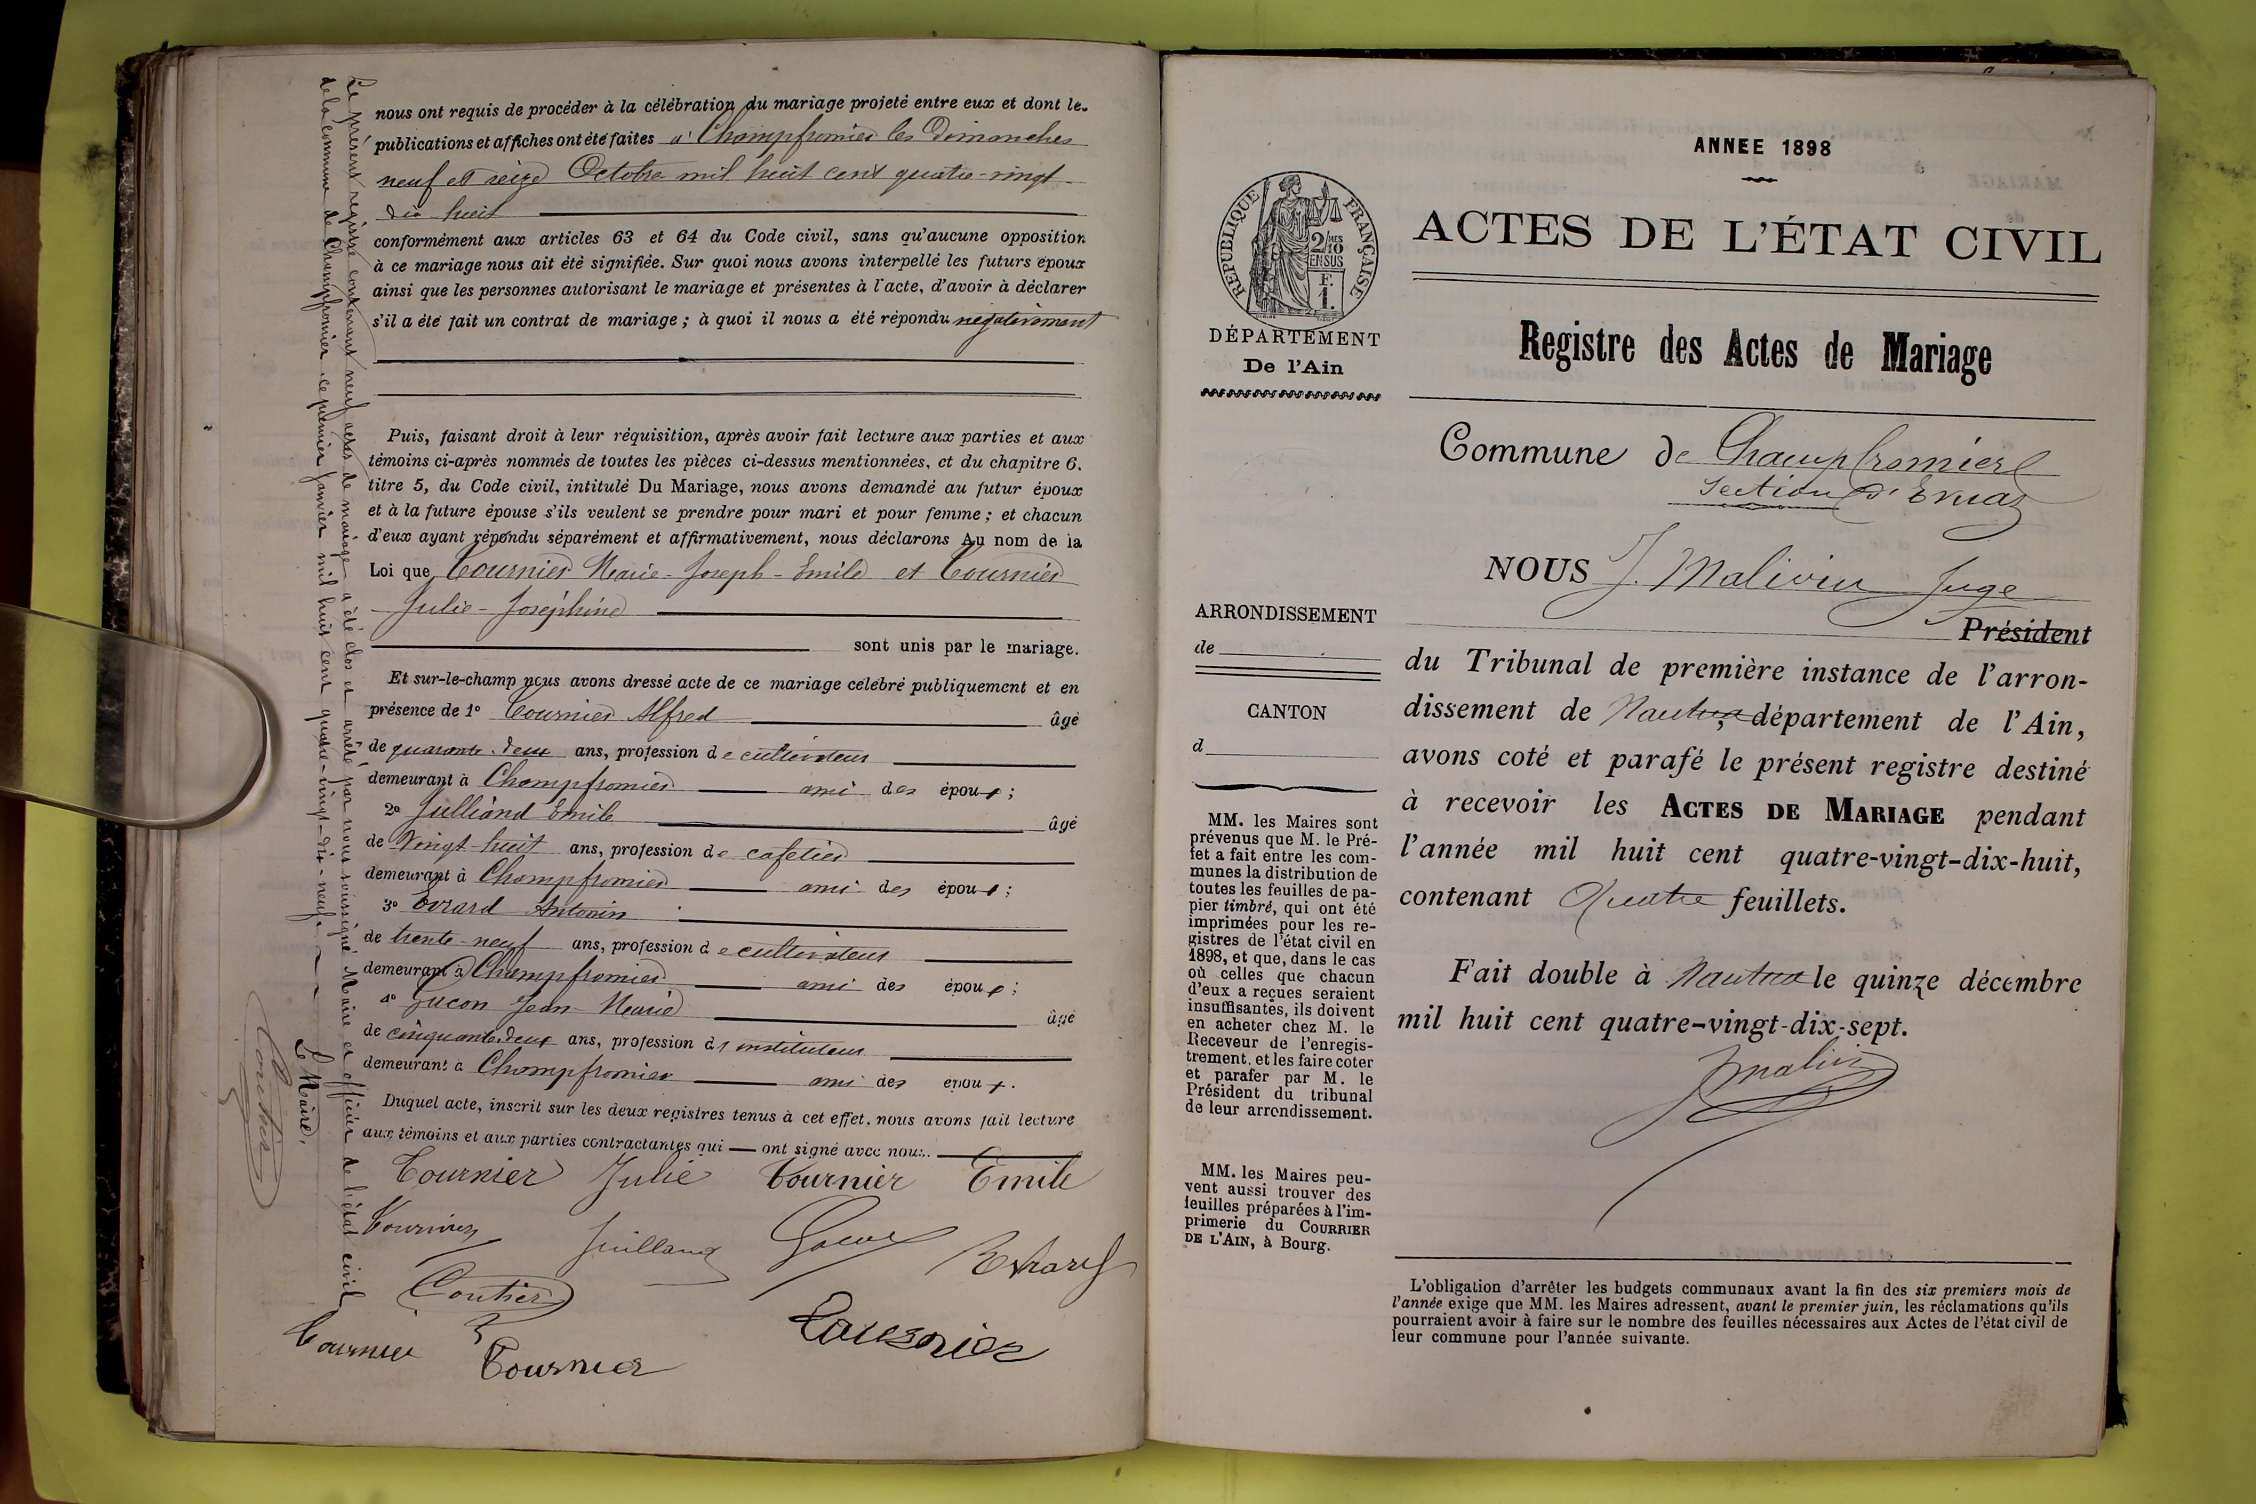 nous ont requis de procéder à la célébration du mariage projeté entre eux et dont le.
publications et affiches ont été faites à Champfromier les Dimanches
neuf et seize Octobre mil huit cent quatre-vingt
dix huit
conformément aux articles 63 et 64 du Code civil, sans qu'aucune opposition
à ce mariage nous ait été signifiée. Sur quoi nous avons interpellé les futurs époux
ainsi que les personnes autorisant le mariage et présentes à l'acte, d'avoir à déclarer
s'il a été fait un contrat de mariage ; à quoi il nous a été répondu négativement
Puis, faisant droit à leur réquisition, après avoir fait lecture aux parties et aux
témoins ci-après nommés de toutes les pièces ci-dessus mentionnées, et du chapitre 6,
titre 5, du Code civil, intitulé Du Mariage, nous avons demandé au futur époux
et à la future épouse s'ils veulent se prendre pour mari et pour femme ; et chacun
d'eux ayant répondu séparément et affirmativement, nous déclarons Au nom de la
Loi que Tournier Marie-Joseph-Emile et Tournier
Julie-Joséphine
sont unis par le mariage.
Et sur-le-champ nous avons dressé acte de ce mariage célébré publiquement et en
présence de 1° Tournier Alfred âgé
de quarante-deux ans, profession de cultivateur
demeurant à Champfromier ami des époux ;
2° Julliand Emile âgé
de Vingt-huit ans, profession de cafetier
demeurant à Champfromier ami des époux ;
3° Evrard Antonin
de trente-neuf ans, profession de cultivateur
demeurant à Champfromier ami des époux ;
4° Gucon Jean-Marie âgé
de cinquante-deux ans, profession d'instituteur
demeurant à Champfromier ami des époux.
Duquel acte, inscrit sur les deux registres tenus à cet effet, nous avons fait lecture
aux témoins et aux parties contractantes qui — ont signé avec nous.
Tournier Julie Tournier Emile
Tournier Juilland Evrard
Coutier
Tournier Tournier Tournier
Le présent registre contenant neuf actes de mariage a été clos et arrêté par nous soussigné Maire et officier de l'état civil
de la commune de Champfromier, ce premier janvier mil huit cent quatre-vingt-dix-neuf.
Le Maire,
Coutier
ANNEE 1898
ACTES DE L'ÉTAT CIVIL
RÉPUBLIQUE FRANÇAISE
2/10MES
EN SUS
F.
1.
DÉPARTEMENT
De l'Ain
Registre des Actes de Mariage
Commune de Champfromier
Section d'Evuaz
NOUS J. Malivin Juge
Président
du Tribunal de première instance de l'arron-
dissement de Nantua, département de l'Ain,
avons coté et parafé le présent registre destiné
à recevoir les ACTES DE MARIAGE pendant
l'année mil huit cent quatre-vingt-dix-huit,
contenant Quatre feuillets.
Fait double à Nantua le quinze décembre
mil huit cent quatre-vingt-dix-sept.
JMalivin
ARRONDISSEMENT
de
CANTON
d
MM. les Maires sont
prévenus que M. le Pré-
fet a fait entre les com-
munes la distribution de
toutes les feuilles de pa-
pier timbré, qui ont été
imprimées pour les re-
gistres de l'état civil en
1898, et que, dans le cas
où celles que chacun
d'eux a reçues seraient
insuffisantes, ils doivent
en acheter chez M. le
Receveur de l'enregis-
trement, et les faire coter
et parafer par M. le
Président du tribunal
de leur arrondissement.
MM. les Maires peu-
vent aussi trouver des
feuilles préparées à l'im-
primerie du COURRIER
DE L'AIN, à Bourg.
L'obligation d'arrêter les budgets communaux avant la fin des six premiers mois de
l'année exige que MM. les Maires adressent, avant le premier juin, les réclamations qu'ils
pourraient avoir à faire sur le nombre des feuilles nécessaires aux Actes de l'état civil de
leur commune pour l'année suivante.